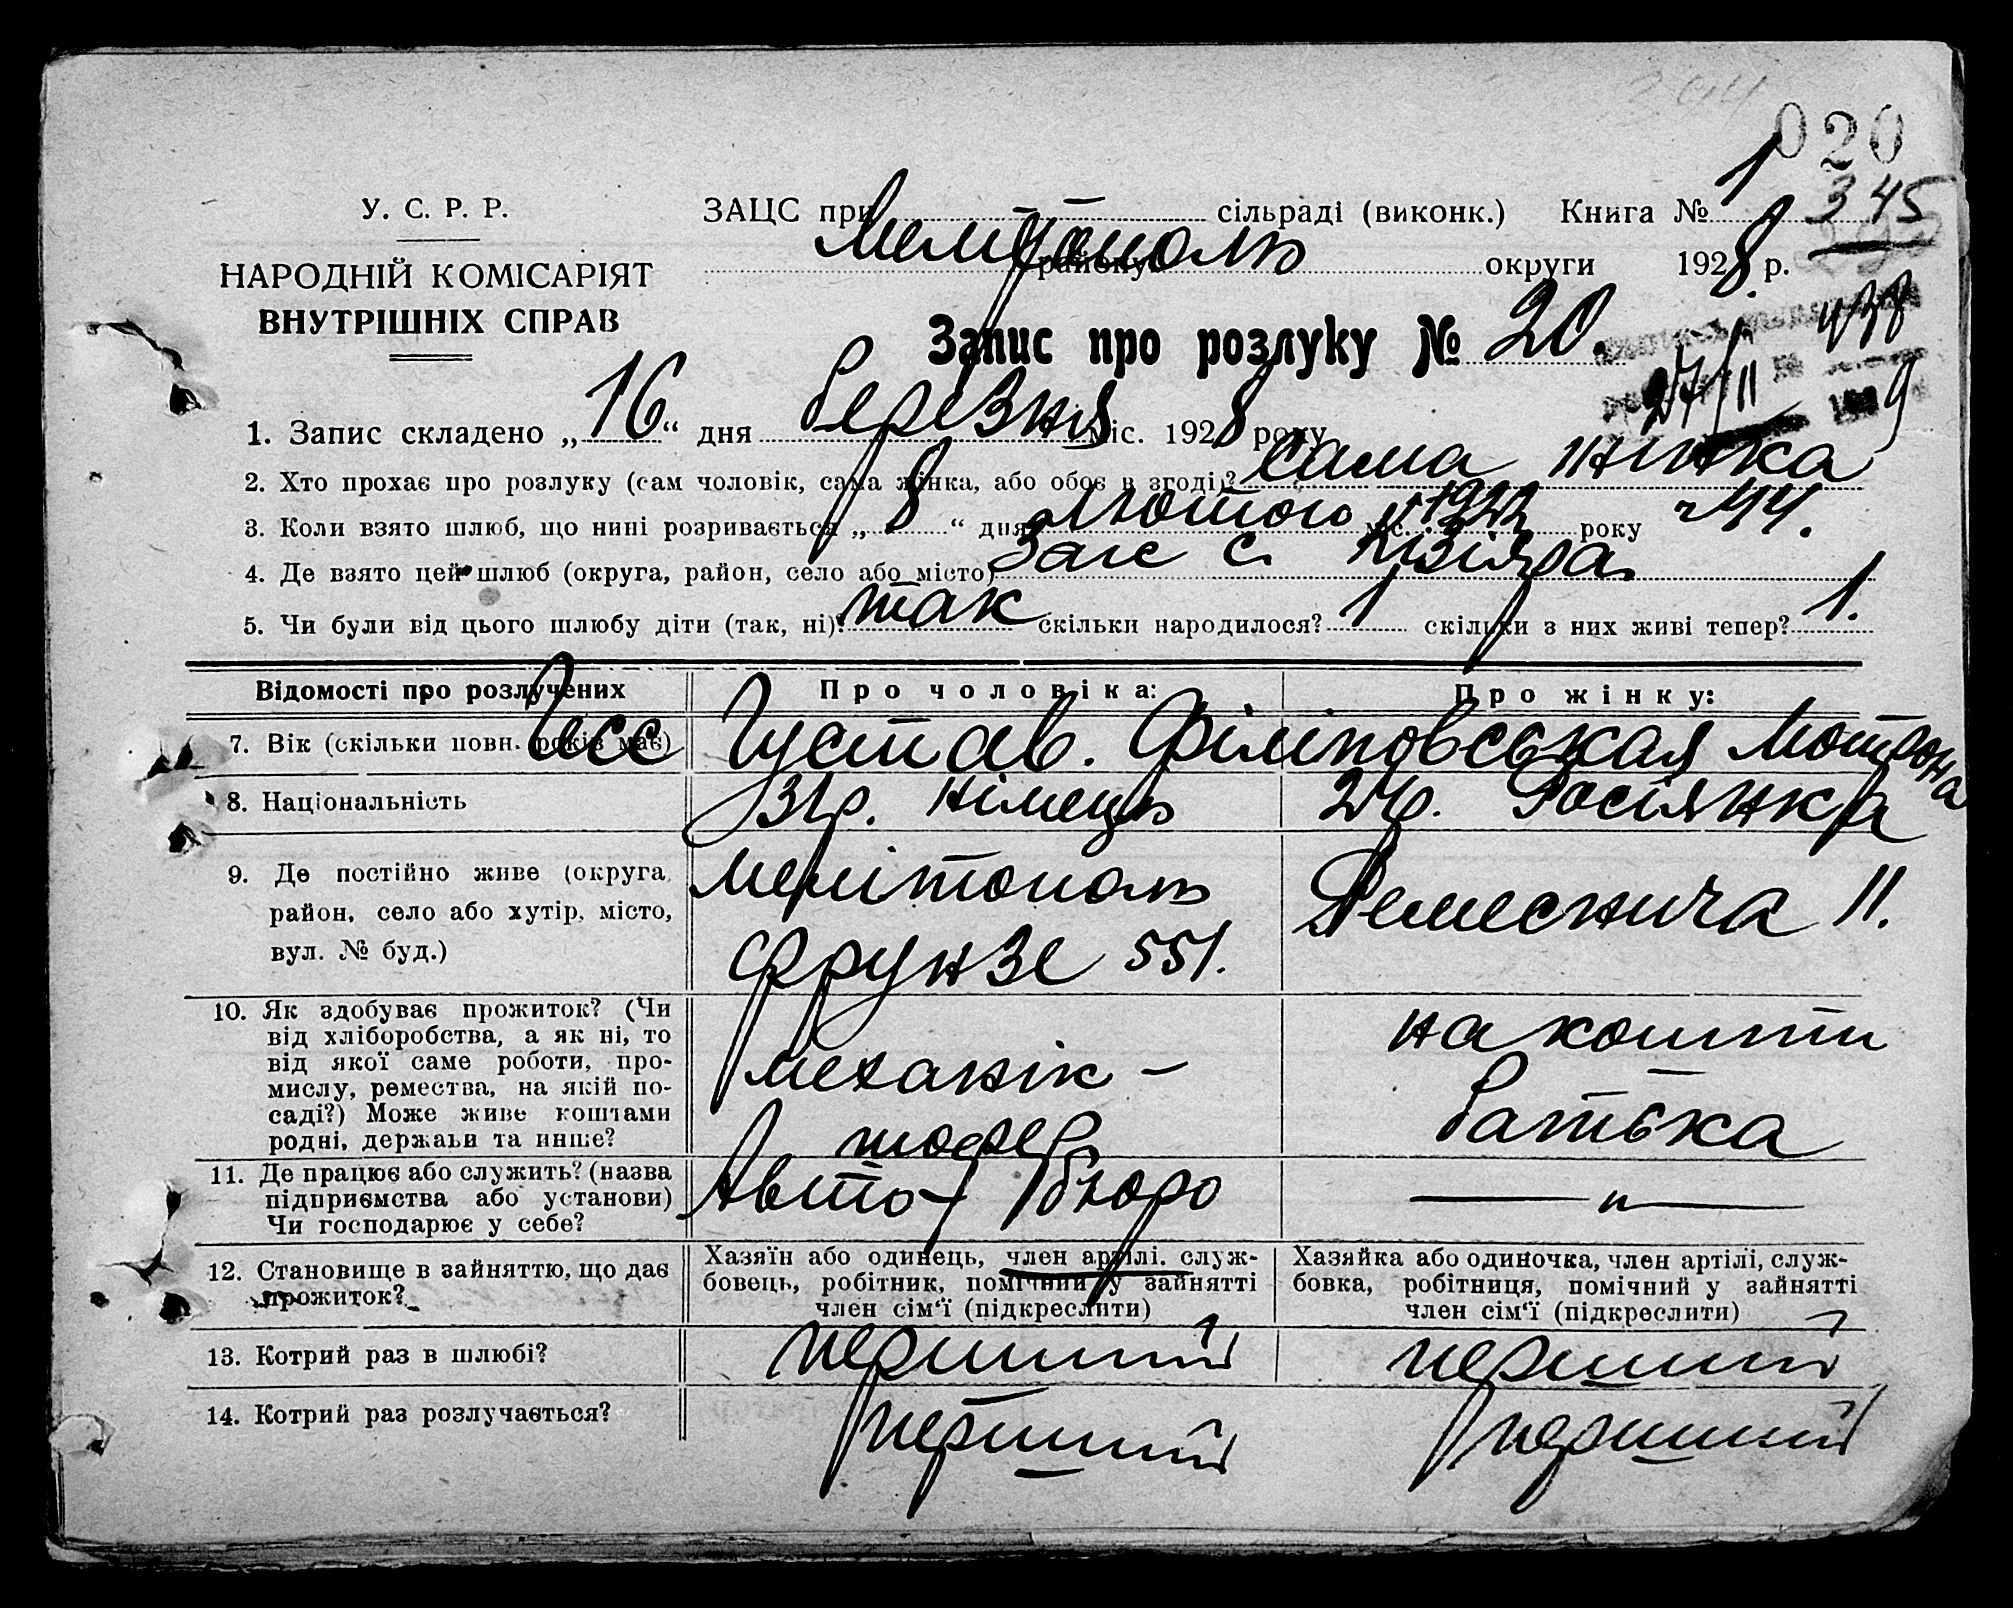 020
1
345
У. С. Р. Р.
ЗАЦС при сільраді (виконк.) Книга №
Мелітополь
району округи 1928 р.
НАРОДНІЙ КОМІСАРІЯТ
ВНУТРІШНІХ СПРАВ
Запис про розлуку № 20.
438
27/II 9
1. Запис складено „16“ дня березня міс. 1928 року
2. Хто прохає про розлуку (сам чоловік, сама жінка, або обоє в згоді)? сама жінка
3. Коли взято шлюб, що нині розривається „8“ дня Лютого міс. року
4. Де взято цей шлюб (округа, район, село або місто) Загс с.
5. Чи були від цього шлюбу діти (так, ні)? так скільки народилося? 1 скільки з них живі тепер? 1.
Відомості про розлучених Про чоловіка: Про жінку:
Гесс Густав. Філіповськая Мотрона
7. Вік (скільки повн. років має)
8. Національність 31р. Німець 24р. Росіянка
9. Де постійно живе (округа, район, село або хутір, місто, вул. № буд.)
Мелітополь
Фрунзе 551.
11.
10. Як здобуває прожиток? (Чи
від хліборобства, а як ні, то
від якої саме роботи, про-
мислу, ремества, на якій по-
саді?) Може живе коштами
родні, держави та инше?
механік -
шофер
на кошти
батька
11. Де працює або служить? (назва
підприємства або установи)
Чи господарює у себе?
Авто-бюро
— „ —
12. Становище в зайняттю, що дає
прожиток?
Хазяїн або одинець, член артілі, служ-
бовець, робітник, помічний у зайнятті
член сім'ї (підкреслити)
Хазяйка або одиночка, член артілі, служ-
бовка, робітниця, помічний у зайнятті
член сім'ї (підкреслити)
13. Котрий раз в шлюбі? перший перший
14. Котрий раз розлучається? перший перший